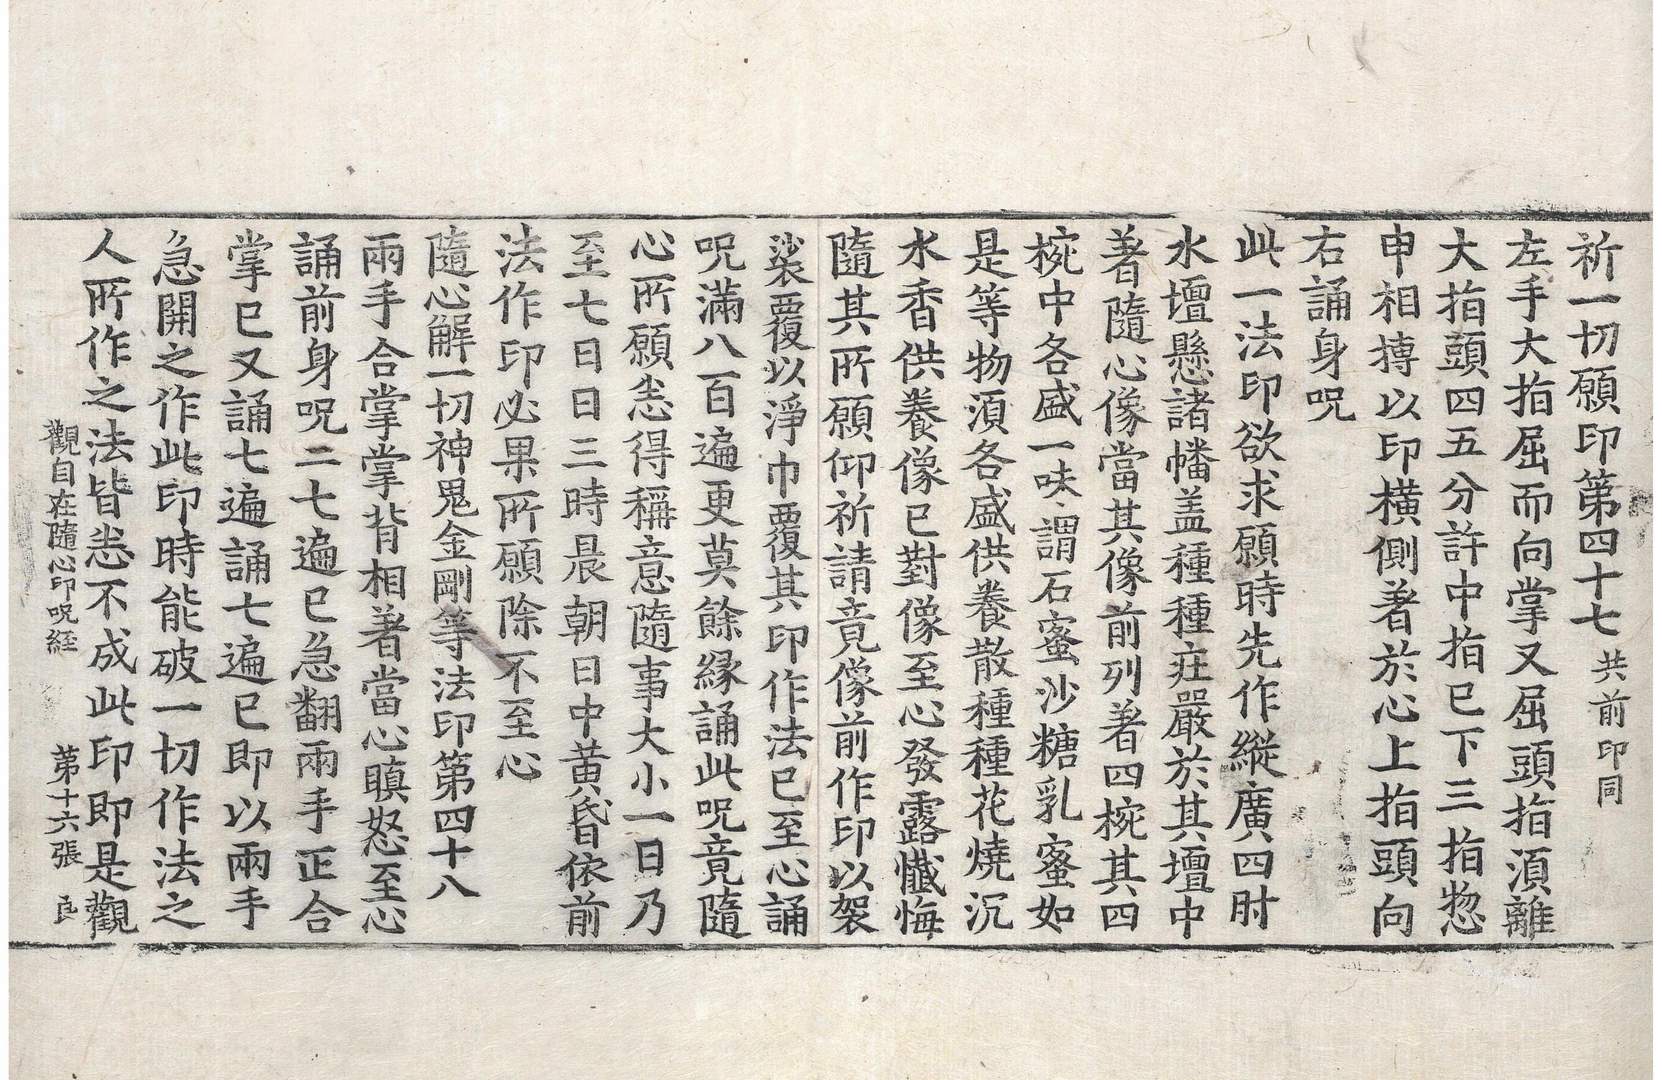 祈一切願印第四十七 共前印同
左手大指屈而向掌又屈頭指湏離
大指頭四五分許中指已下三指惣
申相摶以印橫側著於心上指頭向
右誦身呪
此一法印欲求願時先作縱廣四肘
水壇懸諸幡盖種種疰嚴於其壇中
著隨心像當其像前列著四椀其四
椀中各盛一味謂石蜜沙糖乳蜜如
是等物湏各盛供養散種種花燒沉
水香供養像已對像至心發露懺悔
隨其所願仰祈請竟像前作印以袈
裟覆以淨巾覆其印作法已至心誦
呪滿八百遍更莫餘緣誦此呪竟隨
心所願恙得稱意隨事大小一日乃
至七日日三時晨朝日中黃昏依前
法作印必果所願除不至心
隨心解一切神鬼金剛等法印第四十八
兩手合掌掌背相著當心瞋怒至心
誦前身呪二七遍已急翻兩手正合
掌已又誦七遍誦七遍已即以兩手
急開之作此印時能破一切作法之
人所作之法皆恙不成此印即是觀
觀自在隨心印呪經 第十六張 良